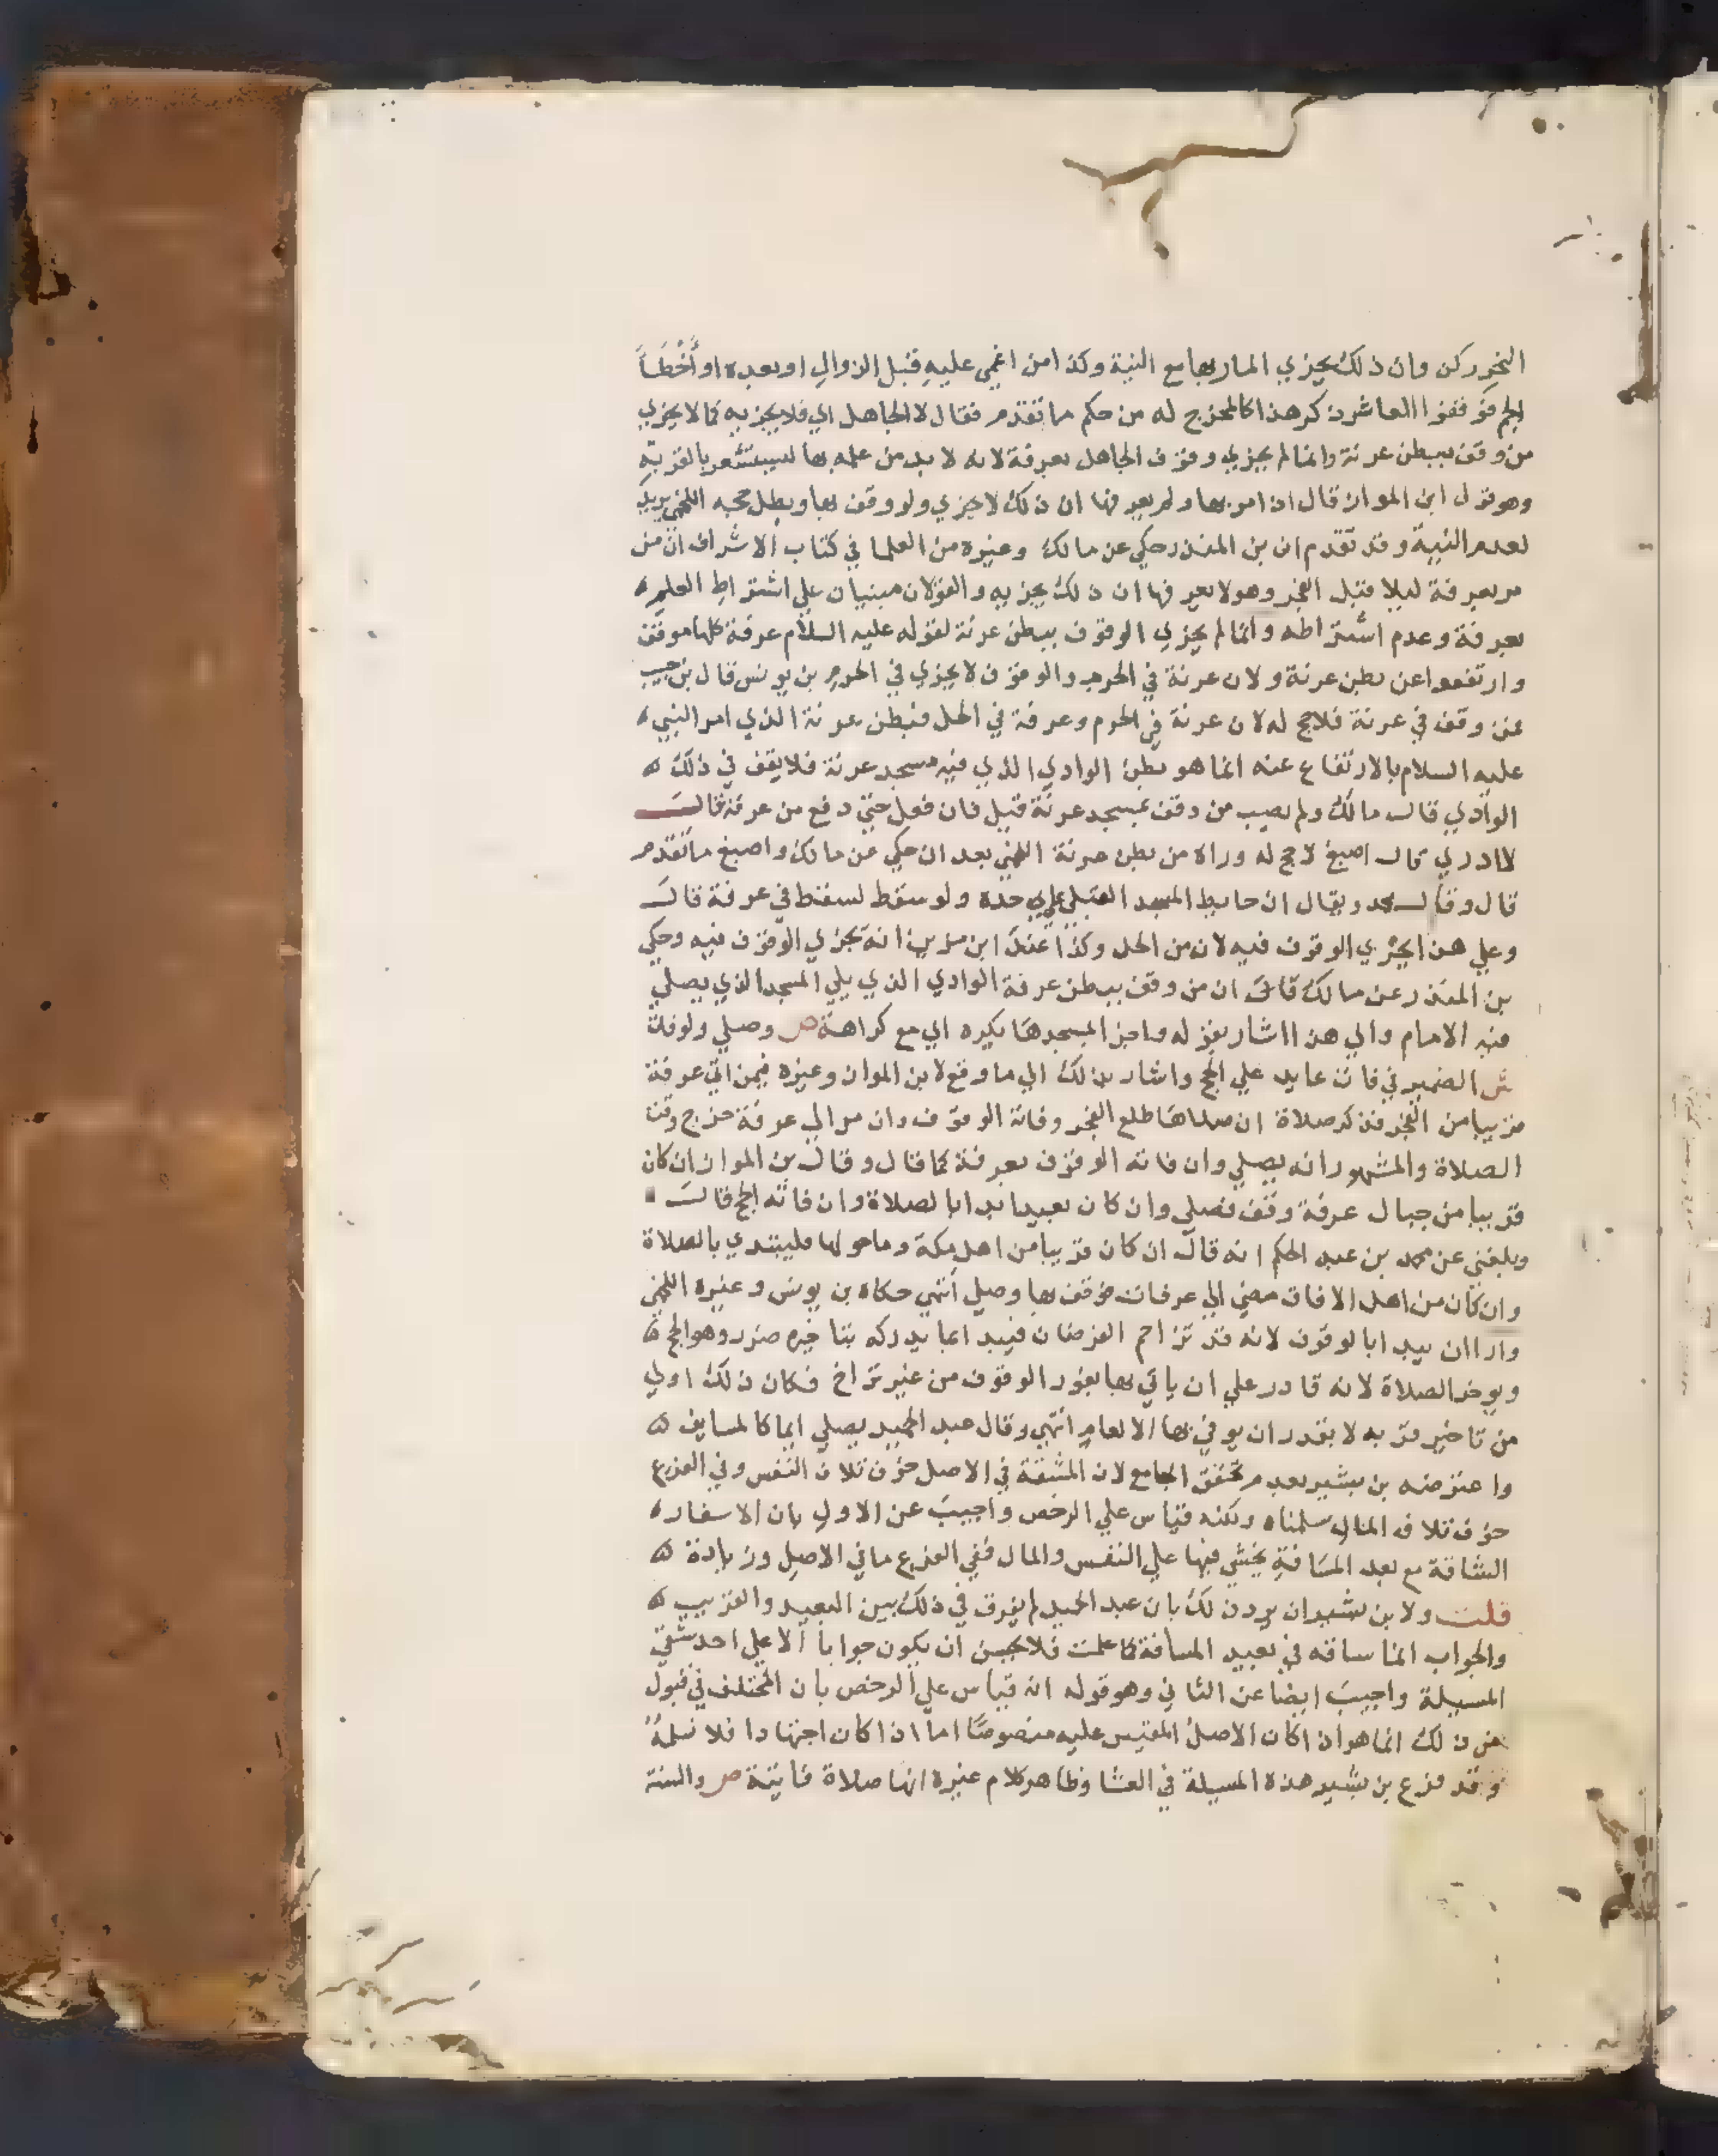 النحر ركن وان ذلك يجزي المار بها مع النية وكذا من اغمي عليه قبل الزوال او بعده او أخطأ
الجم فوقفوا العاشر ذكر هذا كالمخرج له من حكم ما تقدم فقال لا الجاهل اي فلا يجزيه كما لا يجزي
من وقف ببطن عرنة وانما لم يجزي وقوف الجاهل بعرفة لانه لا بد من علمه بها ليستشعر بالقربه
وهو قول ابن المواز قال اذا مر بها ولم يعرفها ان ذلك لا يجزي ولو وقف بها وبطل حجه اللخمي يريد
لعدم النية وقد تقدم ان بن المنذر حكي عن مالك وغيره من العلما في كتاب الاشراف ان من
مر بعرفة ليلا قبل الفجر وهو لا يعرفها ان ذلك يجزيه والقولان مبنيان علي اشتراط العلم
بعرفة وعدم اشتراطه وانما لم يجزي الوقوف ببطن عرنة لقوله عليه السلام عرفة كلها موقف
وارتفعوا عن بطن عرنة ولان عرنة في الحرم والوقوف لا يجزي في الحرم بن يونس قال بن حبيب
من وقف في عرنة فلا حج له لان عرنة في الحرم وعرفة في الحل فبطن عرنة الذي امر النبي
عليه السلام بالارتفاع عنه انما هو بطن الوادي الذي فيه مسجد عرنة فلا يقف في ذلك
الوادي قال مالك ولم يصب من وقف بمسجد عرنة قيل فان فعل حتي دفع من عرفة قال
لا ادري قال اصبغ لا حج له وراه من بطن عرنة اللخمي بعد ان حكي عن مالك واصبغ ما تقدم
قال وقال محمد ويقال ان حايط المسجد القبلي علي حده ولو سقط لسقط في عرفة قال
وعلي هذا يجزي الوقوف فيه لان من الحل وكذا عند ابن مزين انه يجزي الوقوف فيه وحكي
بن المنذر عن مالك قال ان من وقف ببطن عرفة الوادي الذي يلي المسجد الذي يصلي
فيه الامام والي هذا اشار بقوله واجز المسجدها بكره اي مع كراهة ص وصلي ولو فات
ش الضمير في فات عايد علي الحج واشار بذلك الي ما وقع لابن المواز وغيره فيمن اتي عرفة
قريبا من الفجر فذكر صلاة ان صلاها طلع الفجر وفاته الوقوف وان مر الي عرفة خرج وقت
الصلاة والمشهور انه يصلي وان فاته الوقوف بعرفة كما قال وقال بن المواز ان كان
قريبا من جبال عرفة وقف فصلي وان كان بعيدا بدا بالصلاة وان فاته الحج قال
وبلغني عن محمد بن عبد الحكم انه قال ان كان قريبا من اهل مكة وما حولها فليبتدي بالصلاة
وان كان من اهل الافاق مضي الي عرفات فوقف بها وصلي انتهي حكاه بن يونس وغيره اللخمي
وارا ان يبدا بالوقوف لانه قد تزاحم الفرضان فيبدا بما يدركه بتاخيره ضرر وهو الحج
ويوخر الصلاة لانه قادر علي ان ياتي بها بفور الوقوف من غير تراخ فكان ذلك اولي
من تاخير قربه لا يقدر ان يوفي بها الا لعام انتهي وقال عبد الحميد يصلي ايما كالمسايف
واعترضه بن بشير بعدم تحقق الجامع لان المشقة في الاصل خوف تلاف النفس وفي الفرع
خوف تلاف المال سلمناه ولكنه قياس علي الرخص واجيب عن الاول بان الاسفار
الشاقة مع بعد المسافة يخشي فيها علي النفس والمال ففي الفرع ما في الاصل وزيادة
قلت ولابن بشير ان يرد ذلك بان عبد الحميد لم يفرق في ذلك بين البعيد والقريب
والجواب انما ساقه في بعيد المسافة كما علمت فلا يحسن ان يكون جوابا الا علي احد شقي
المسيلة واجيب ايضا عن الثاني وهو قوله انه قياس علي الرخص بان المختلف في قبول
من ذلك انما هو اذا كان الاصل المقيس عليه منصوصا اما اذا كان اجتهادا فلا نسلمه
وقد فرع بن بشير هذه المسيلة في العشا وظاهر كلام غيره انها صلاة فايتة ص والسنة